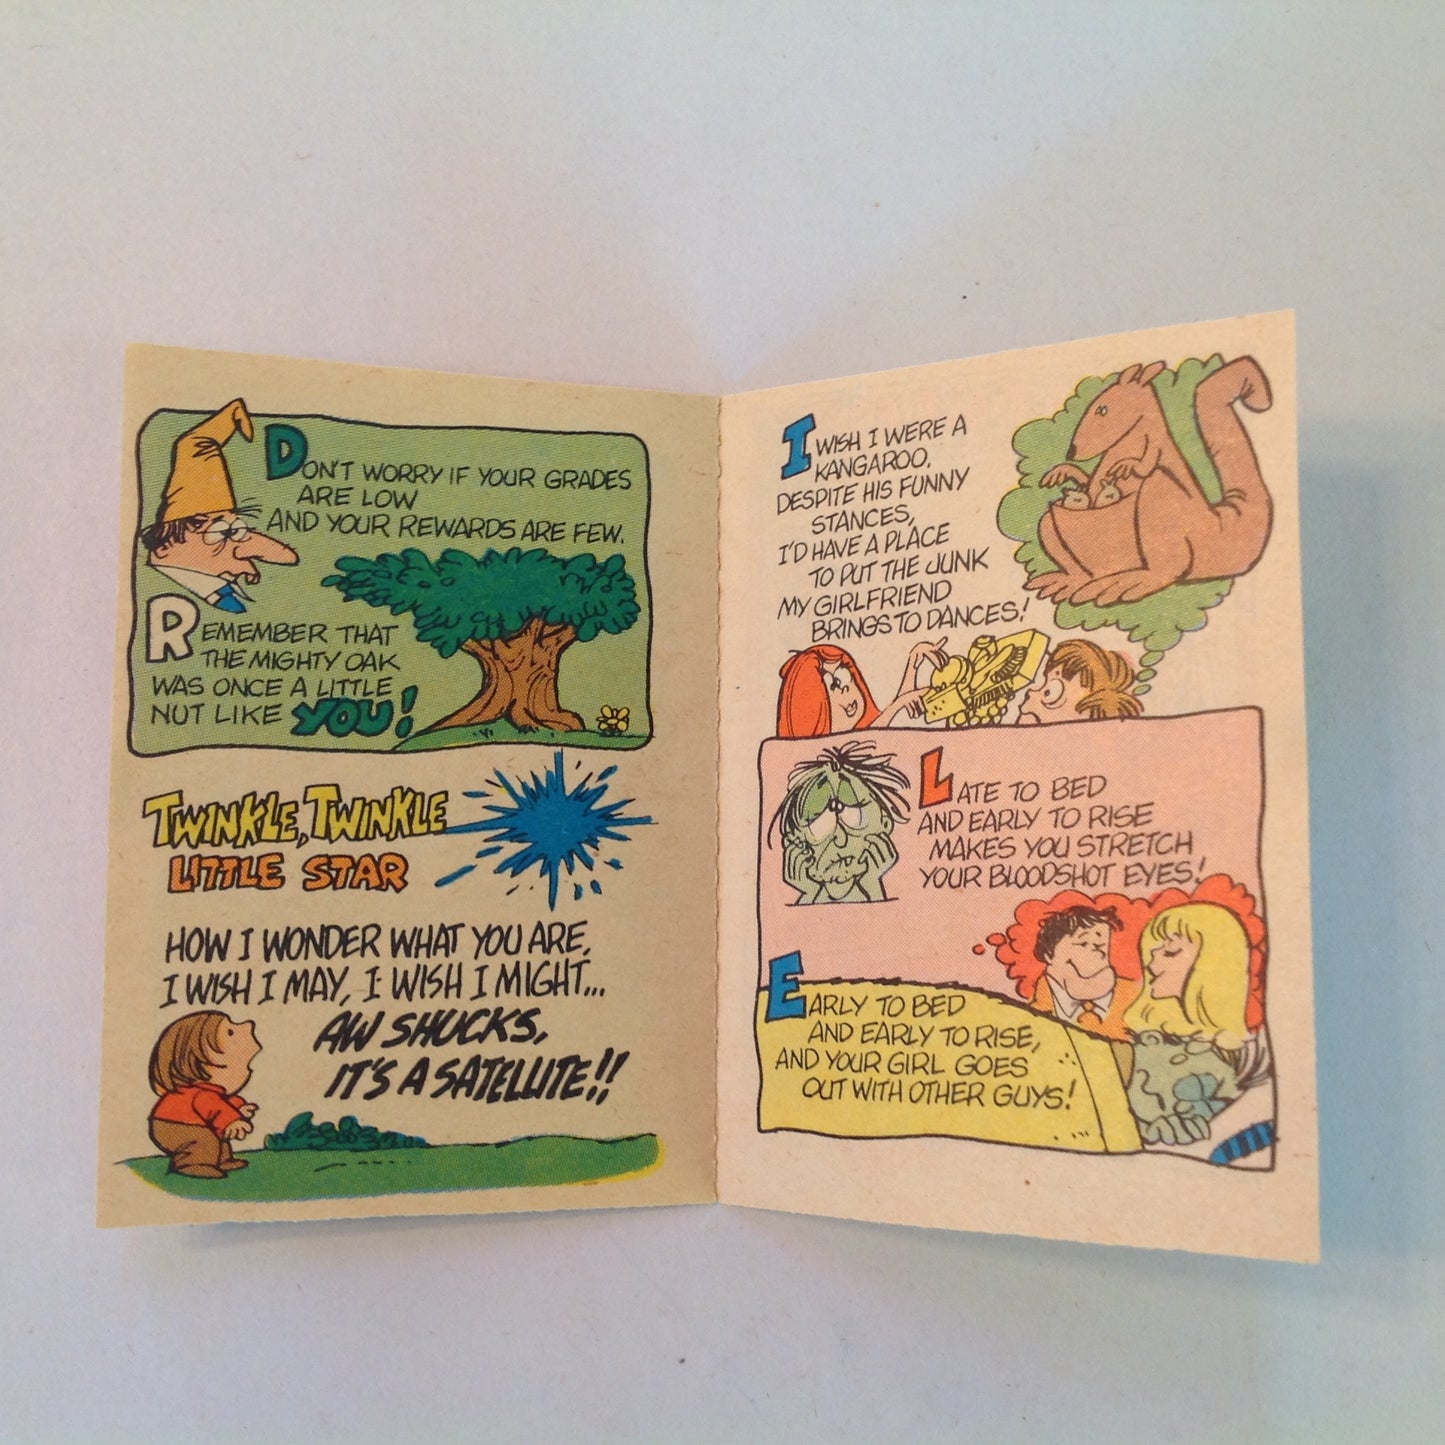 DON'T WORRY IF YOUR GRADES
ARE LOW
AND YOUR REWARDS ARE FEW.
REMEMBER THAT
THE MIGHTY OAK
WAS ONCE A LITTLE
NUT LIKE YOU!
TWINKLE, TWINKLE
LITTLE STAR
HOW I WONDER WHAT YOU ARE,
I WISH I MAY, I WISH I MIGHT...
AW SHUCKS,
IT'S A SATELLITE!!
I WISH I WERE A
KANGAROO,
DESPITE HIS FUNNY
STANCES,
I'D HAVE A PLACE
TO PUT THE JUNK
MY GIRLFRIEND
BRINGS TO DANCES!
LATE TO BED
AND EARLY TO RISE
MAKES YOU STRETCH
YOUR BLOODSHOT EYES!
EARLY TO BED
AND EARLY TO RISE,
AND YOUR GIRL GOES
OUT WITH OTHER GUYS!